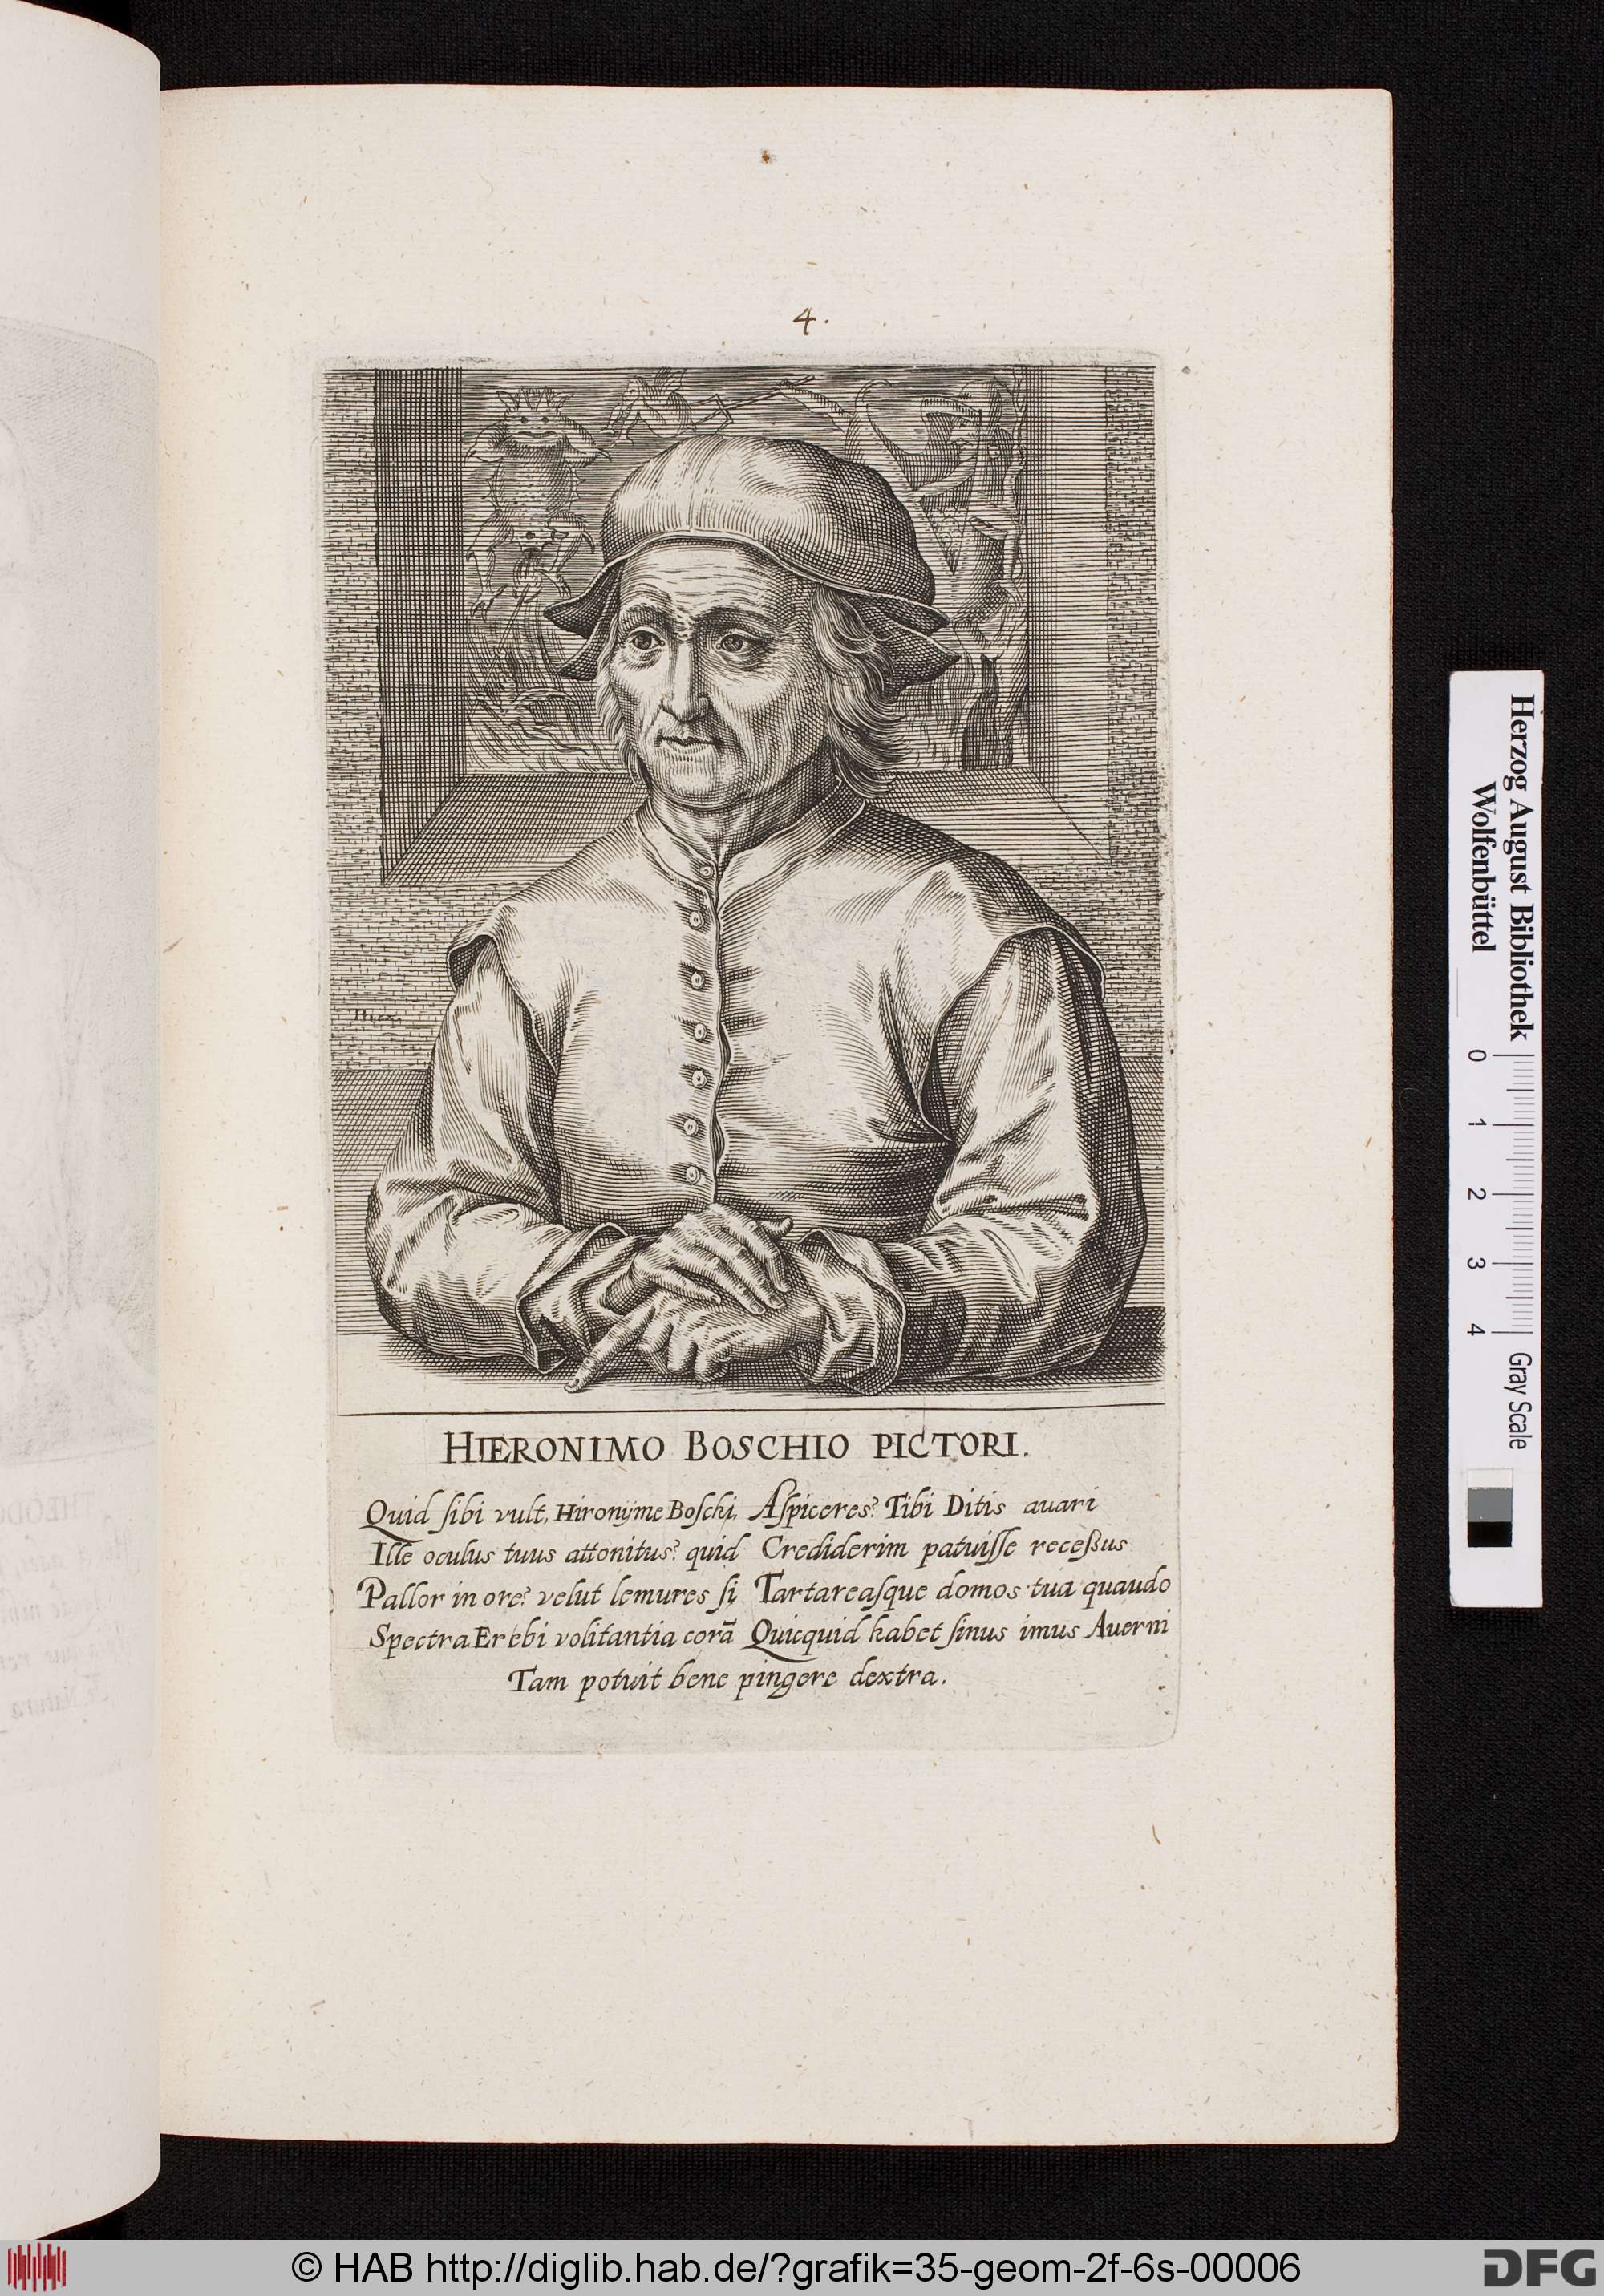 4.
HIERONIMO BOSCHIO PICTORI.
Quid ſibi vult, Hironÿme Boſchi,
Ille oculus tuus attonitus? quid
Pallor in ore? velut lemures ſi
Spectra Erebi volitantia corā
Aſpiceres? Tibi Ditis auari
Crediderim patuiſſe receßus
Tartareaſque domos tua quando
Quicquid habet ſinus imus Auerni
Tam potuit bene pingere dextra.
Herzog August Bibliothek
Wolfenbüttel
0 1 2 3 4
Gray Scale
© HAB http://diglib.hab.de/?grafik=35-geom-2f-6s-00006
DFG